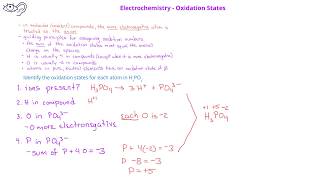 Electrochemistry - Oxidation States
- in molecular (covalent) compounds, the more electronegative atom is treated as the anion
- guiding principles for assigning oxidation numbers
- the sum of the oxidation states must equal the overall charge on the species
- H is usually +1 in compounds (except when it is more electronegative)
- O is usually -2 in compounds
- atoms in pure, neutral elements have an oxidation state of 0
Identify the oxidation states for each atom in H₃PO₄
1. ions present? H₃PO₄ → 3 H⁺ + PO₄³⁻
2. H in compound H⁺¹
3. O in PO₄³⁻ each O is -2
- O more electronegative
4. P in PO₄³⁻
- sum of P + 4 O = -3
P + 4(-2) = -3
P - 8 = -3
P = +5
+1 +5 -2
H₃PO₄